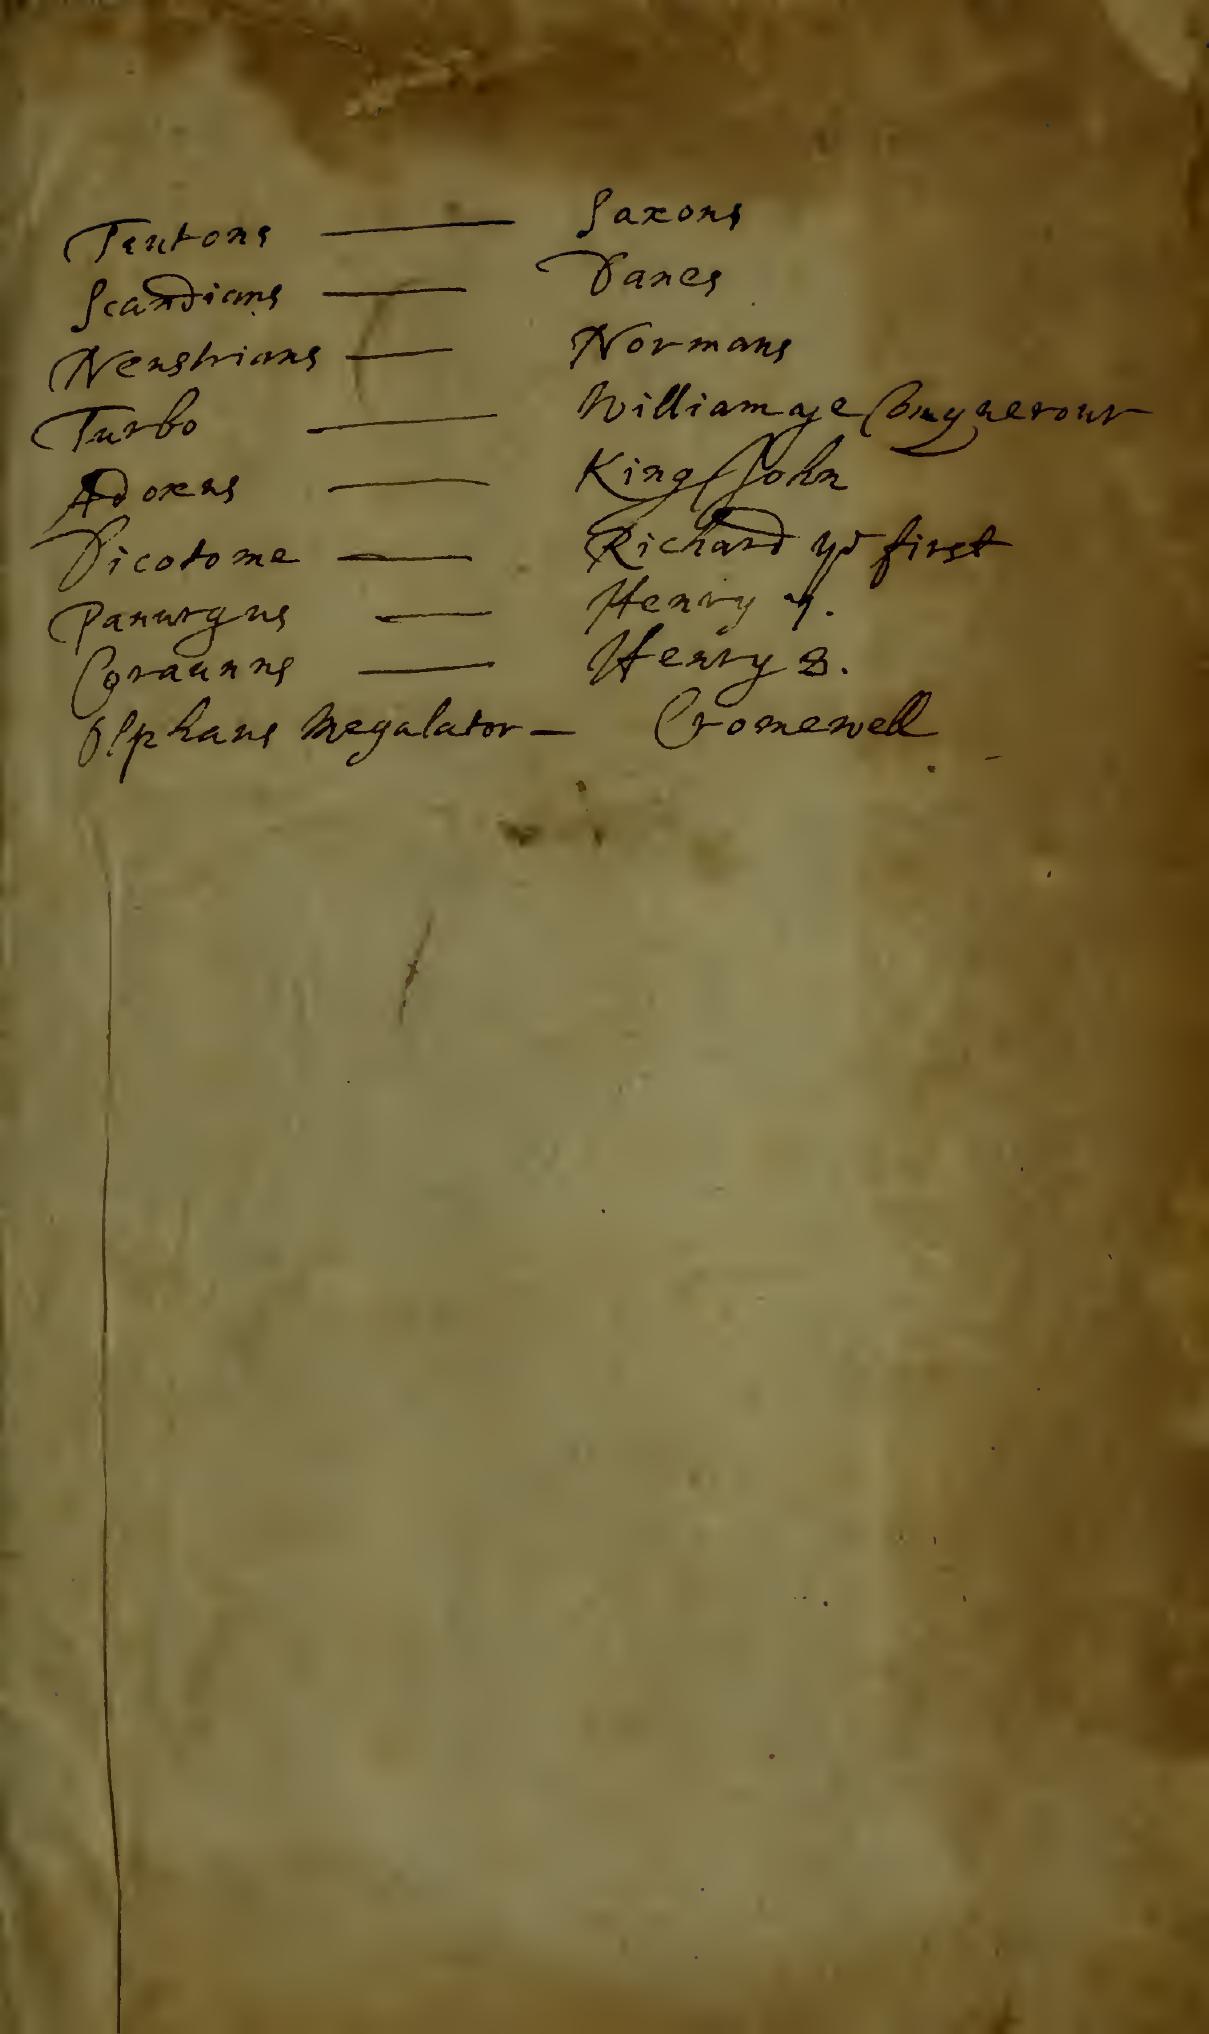 Teutons — Saxons
Scandians — Danes
Neustrians — Normans
Turbo — William ye Conquerour
Adoxus — King John
Dicotome — Richard ye first
Panurgus — Henry 7.
Coraunus — Henry 8.
Olphaus Megalator — Cromewell